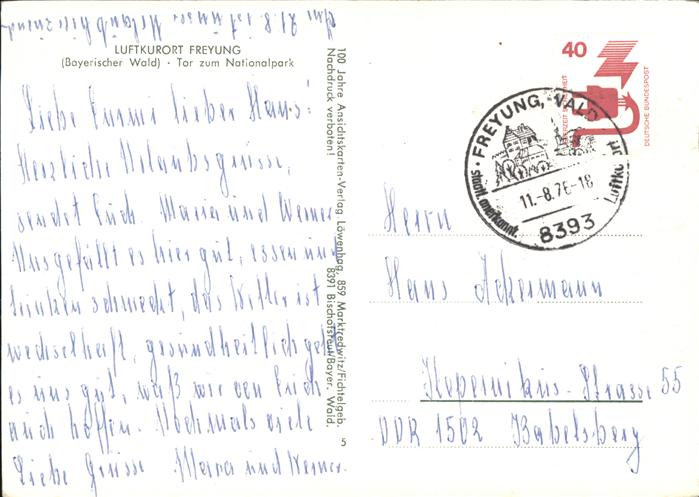 Am 21.8 ist unser Urlaub hier zuend
LUFTKURORT FREYUNG
(Bayerischer Wald) · Tor zum Nationalpark
Liebe Emmi lieber Hans!
Herzliche Urlaubsgrüsse,
sendet Euch Maria und Werner
Uns gefällt es hier gut, essen und
trinken schmeckt, das Wetter ist
wechselhaft, gesundheitlich geht
es uns gut, was wir von Euch
auch hoffen. Nochmals viele
Liebe Grüsse Maria und Werner.
100 Jahre Ansichtskarten-Verlag Löwenhag, 859 Marktredwitz/Fichtelgeb.
Nachdruck verboten! 8391 Bischofsreut/Bayer. Wald.
5
40
DEUTSCHE BUNDESPOST
JEDERZEIT SICHERHEIT
FREYUNG, WALD
staatl. anerkannt. Luftkurort
11.-8.76-18
8393
Herrn
Hans Ackermann
Kopernikus-Strasse 55
DDR 1502 Babelsberg